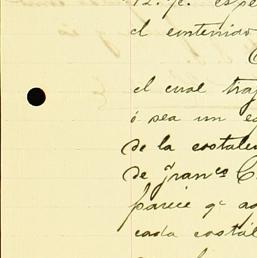 12. p. espe
el contenido
el cual tra
ó sea un e
de la costale
de granos C
parece qe a
cada costal